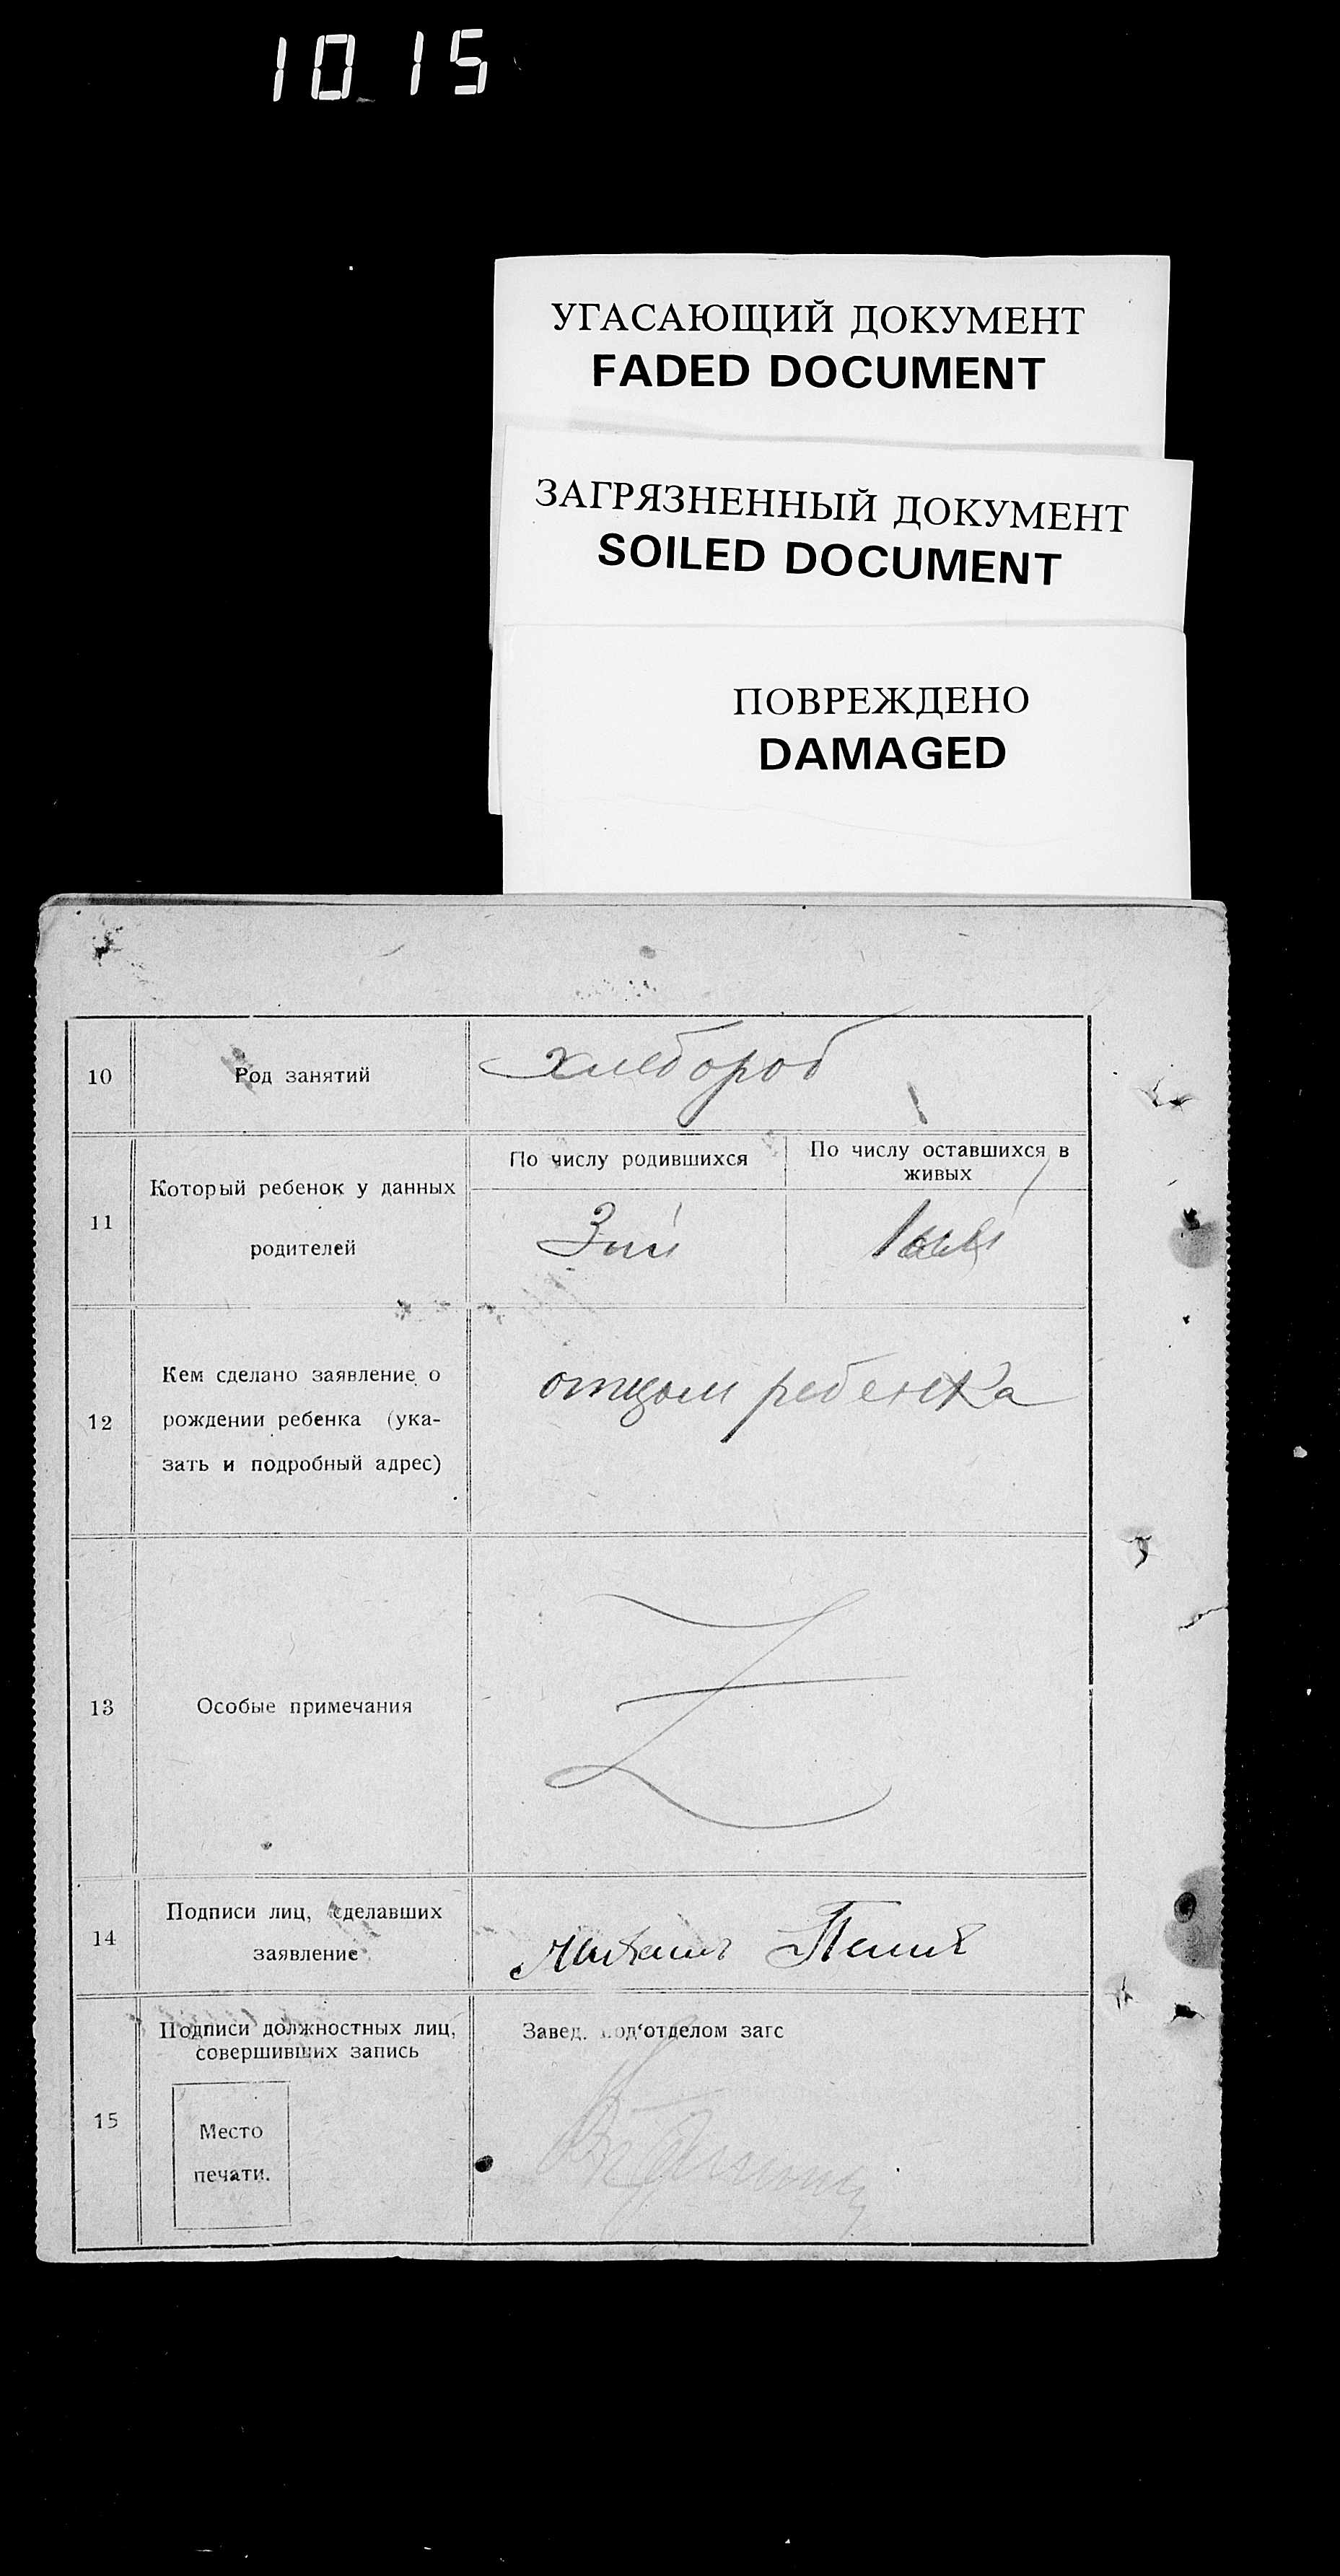 10 15
УГАСАЮЩИЙ ДОКУМЕНТ
FADED DOCUMENT
ЗАГРЯЗНЕННЫЙ ДОКУМЕНТ
SOILED DOCUMENT
ПОВРЕЖДЕНО
DAMAGED
10
Род занятий
хлебороб
11
Который ребенок у данных
родителей
По числу родившихся
По числу оставшихся в
живых
3ий
12
Кем сделано заявление о
рождении ребенка (ука-
зать и подробный адрес)
отцом ребенка
13
Особые примечания
Z
14
Подписи лиц, сделавших
заявление
Михаил
15
Подписи должностных лиц,
совершивших запись
Место
печати.
Завед. под'отделом загс